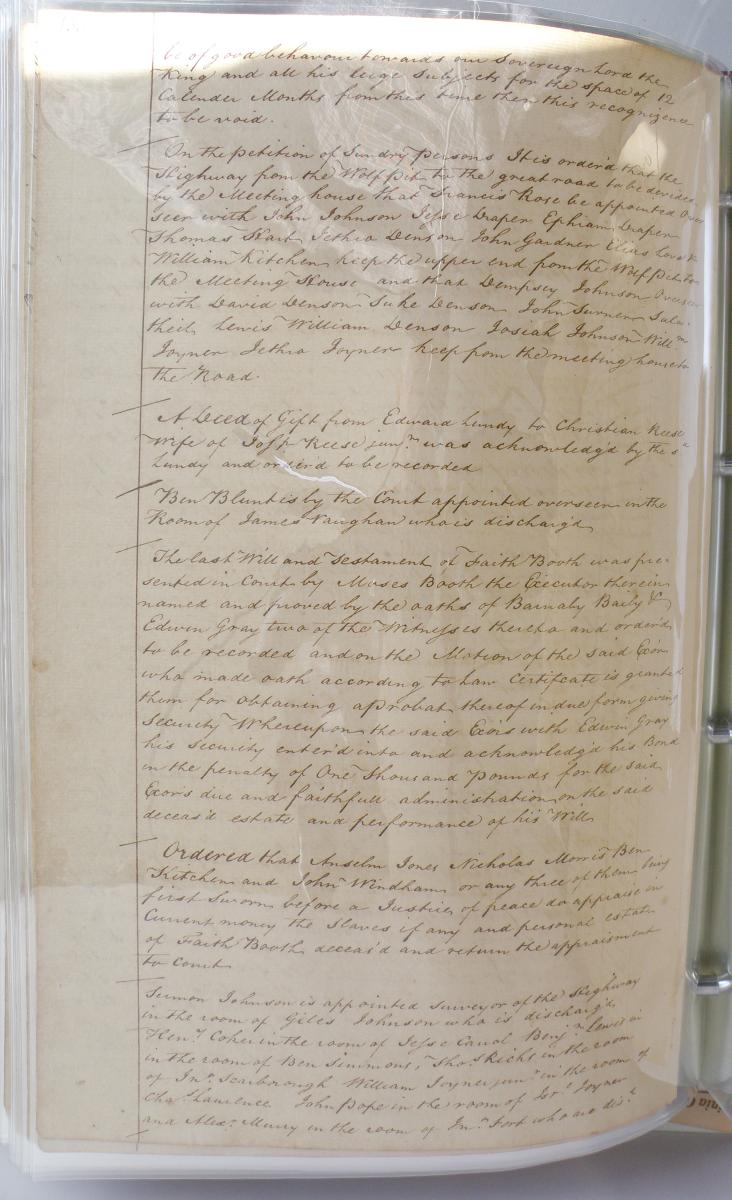 be of good behavour towards our Sovereign Lord the
King and all his liege Subjects for the space of 12
Calender Months from this time then this recognizence
to be void.
On the petition of Sundry persons It is order'd that the
Highway from the Wolf pit to the great road to be devided
by the Meeting house that Francis Rose be appointed Over
seer with John Johnson Jesse Draper Ephraim Draper
Thomas Hart Jethro Denson John Gardner Elias
William Kitchen keep the upper end from the Wolf pit to
the Meeting House and that Dempsey Johnson Overseer
with David Denson Tuke Denson John Turner
Lewis William Denson Josiah Johnson Will.m
Joyner Jethro Joyner keep from the meeting house to
the Road.
A Deed of Gift from Edward Lundy to Christian Reese
Wife of Jos.h Reese jun.r was acknowledg'd by the s.d
Lundy and order'd to be recorded
Ben Blunt is by the Court appointed overseer in the
Room of James Vaughan who is discharg'd
The last Will and Testament of Faith Booth was pre-
sented in Court by Moses Booth the Executor therein
named and proved by the oaths of Barnaby Baily &
Edwin Gray two of the Witnesses thereto and order'd
to be recorded and on the Motion of the said Exór
who made oath according to Law Certifcate is granted
them for obtaining a probat thereof in due form giving
Security Whereupon the said Exórs with Edwin Gray
his Security enter'd into and acknowledg'd his Bond
in the penalty of One Thousand pounds for the said
Exor's due and faithfull administration on the said
deceas'd estate and performance of his Will
Ordered that Anselm Jones Nicholas Morris Ben
Kitchen and John Windham or any three of them being
first Sworn before a Justice of peace do appraise in
Current money the Slaves if any and personal estate
of Faith Booth deceas'd and return the appraisment
to Court
Simon Johnson is appointed Surveyor of the Highway
in the room of Giles Johnson who is discharg'd
Hen.y Coker in the room of Jesse Carrel Benj.n Lewis
in the room of Ben Simmons, Tho.s Ricks in the room
of Jn.o Scarborough William Joyner jun.r in the room of
Cha.s Laurence John Pope in the room of Joyner
and Alex.r Murry in the room of Jn.o Fort who are dis.d